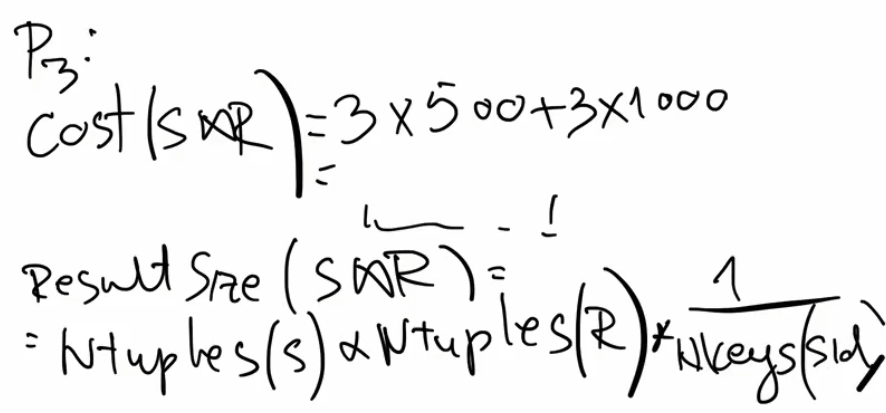 P3:
Cost(S⋈R) = 3 x 500 + 3 x 1000
=
Result Size (S⋈R) =
= Ntuples(S) x Ntuples(R) * 1 / Nkeys(sid)